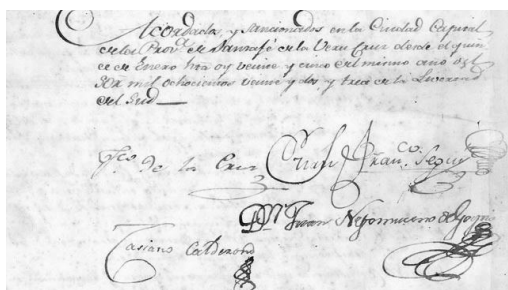 Acordados, y sancionados en la Ciudad Capital
en la Prov.ª de Santafé de la Vera Cruz desde el quin
ce de Enero hta oy veinte y cinco del mismo año del
Sor. mil ochocientos veinte y dos, y trece de la Livertad
del Sud
Fco. de la Cruz Franco. Seguí
Juan Nepomuceno de Goytia
Casiano Calderond